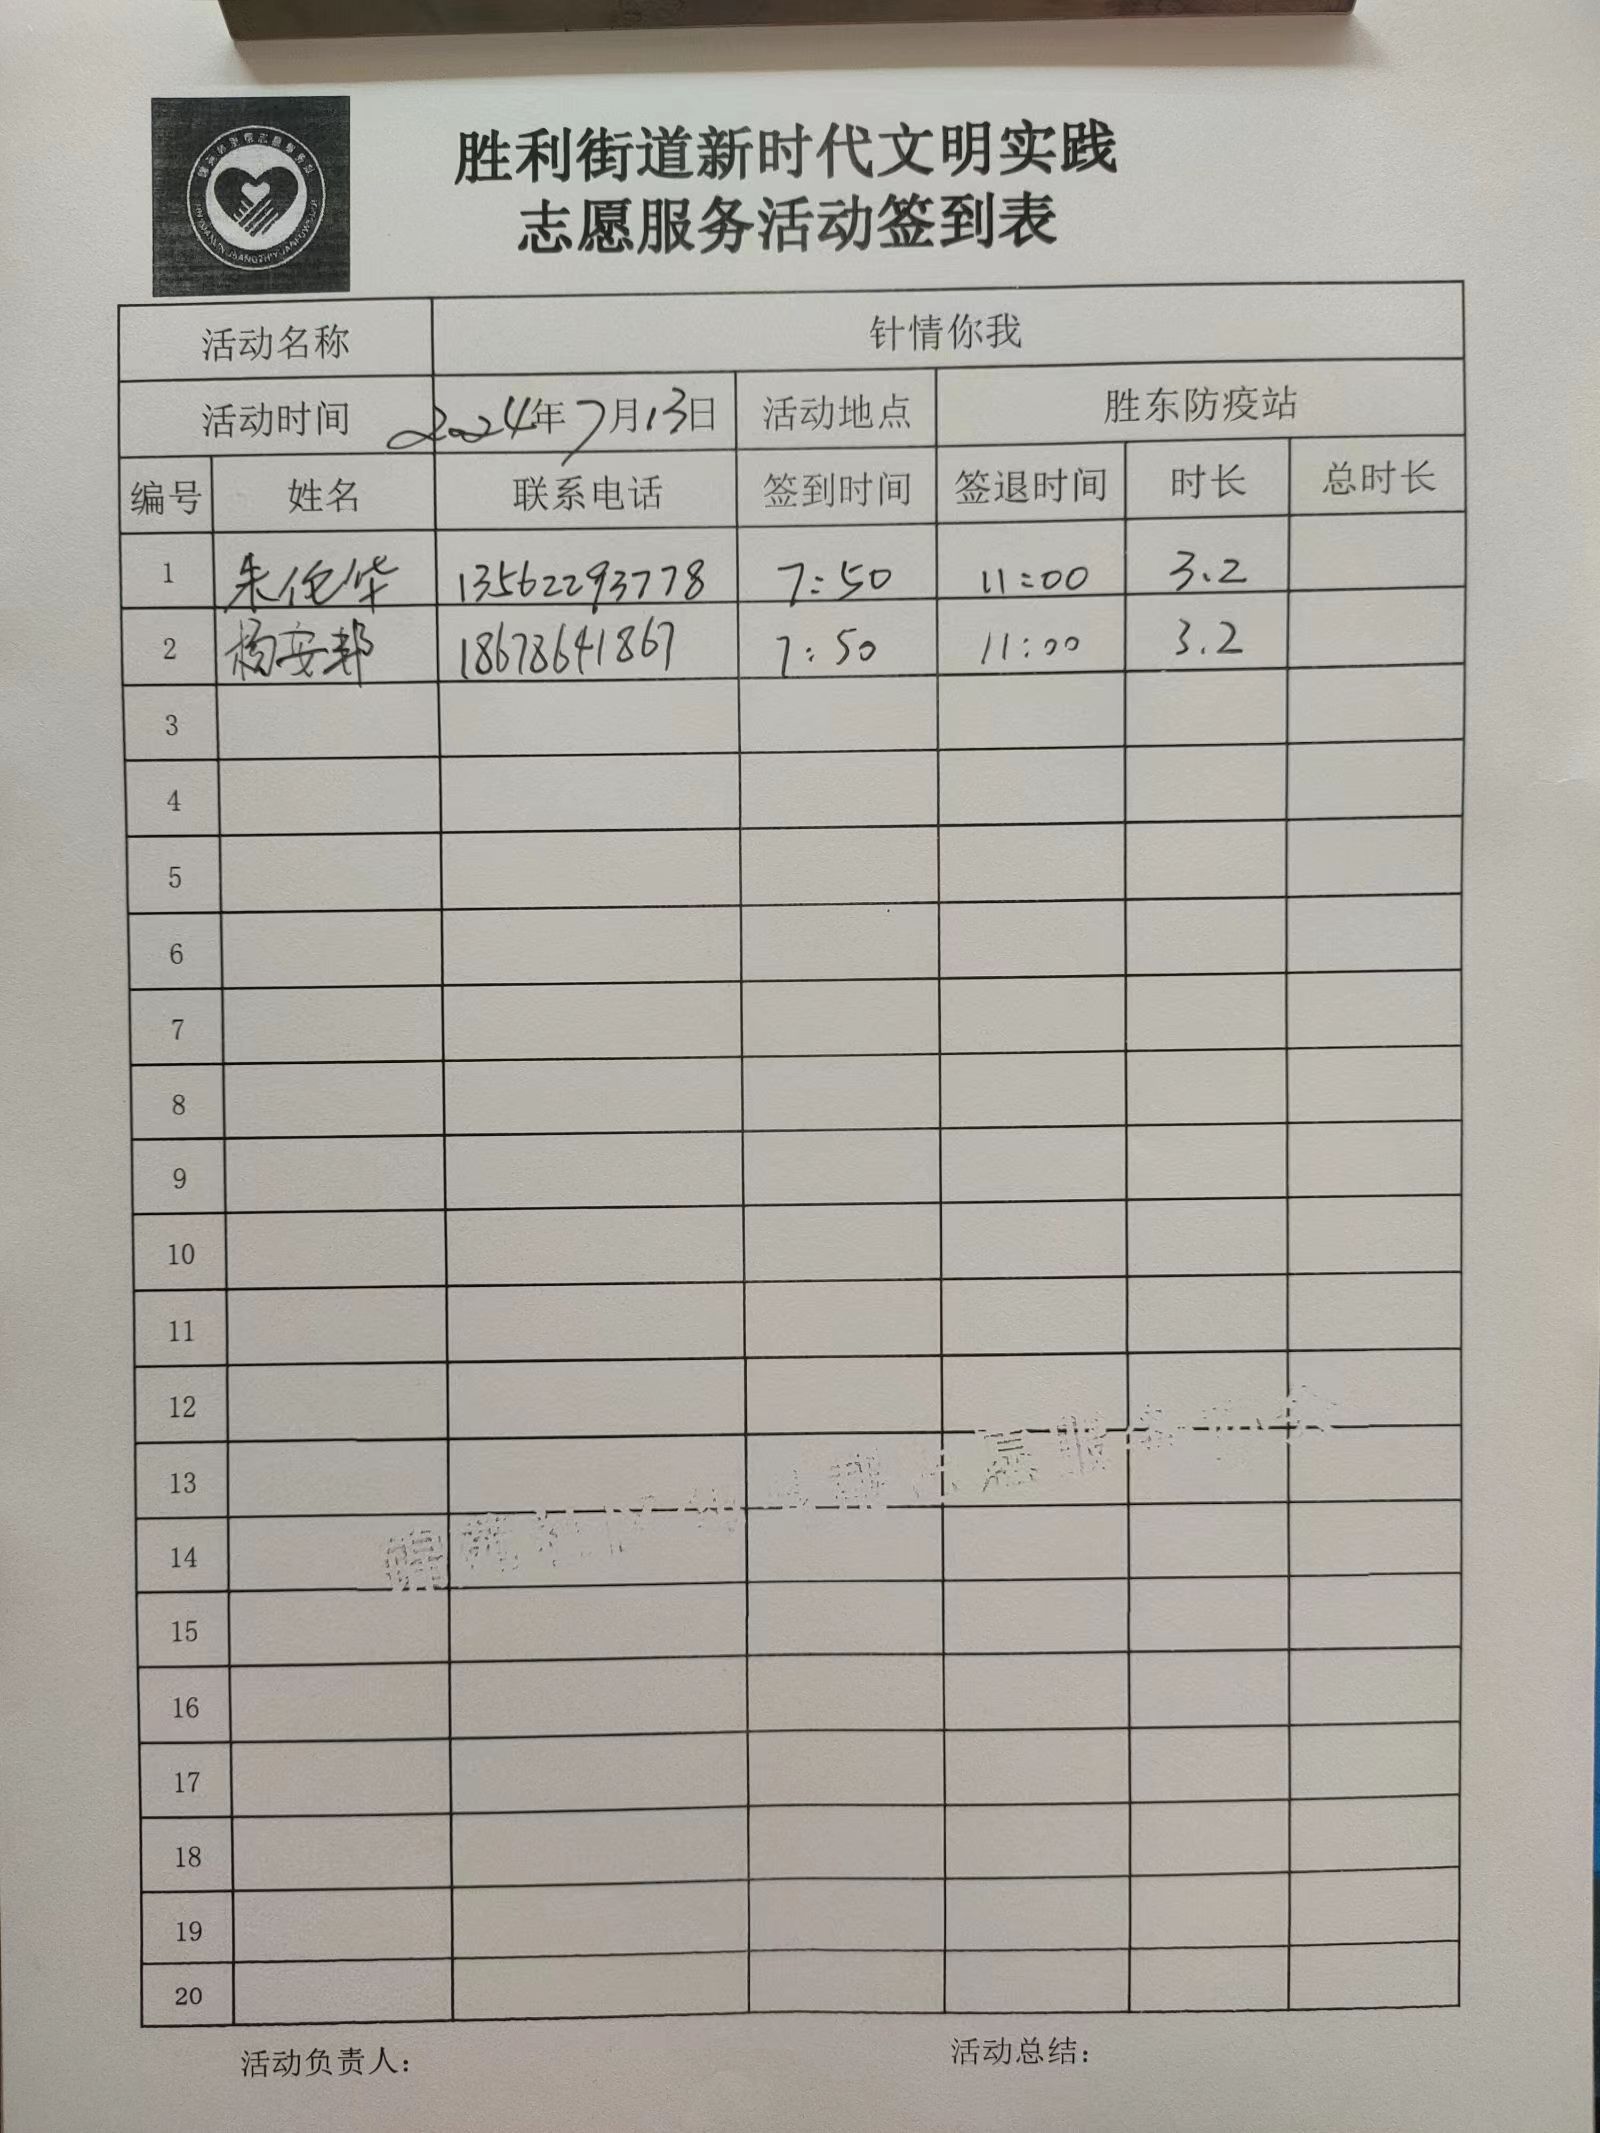 胜利街道新时代文明实践
志愿服务活动签到表
活动名称 针情你我
活动时间 2024年7月13日 活动地点 胜东防疫站
编号 姓名 联系电话 签到时间 签退时间 时长 总时长
1 朱伦华 13562293778 7:50 11:00 3.2
2 杨安邦 18678641867 7:50 11:00 3.2
3
4
5
6
7
8
9
10
11
12
13
14
15
16
17
18
19
20
活动负责人: 活动总结: